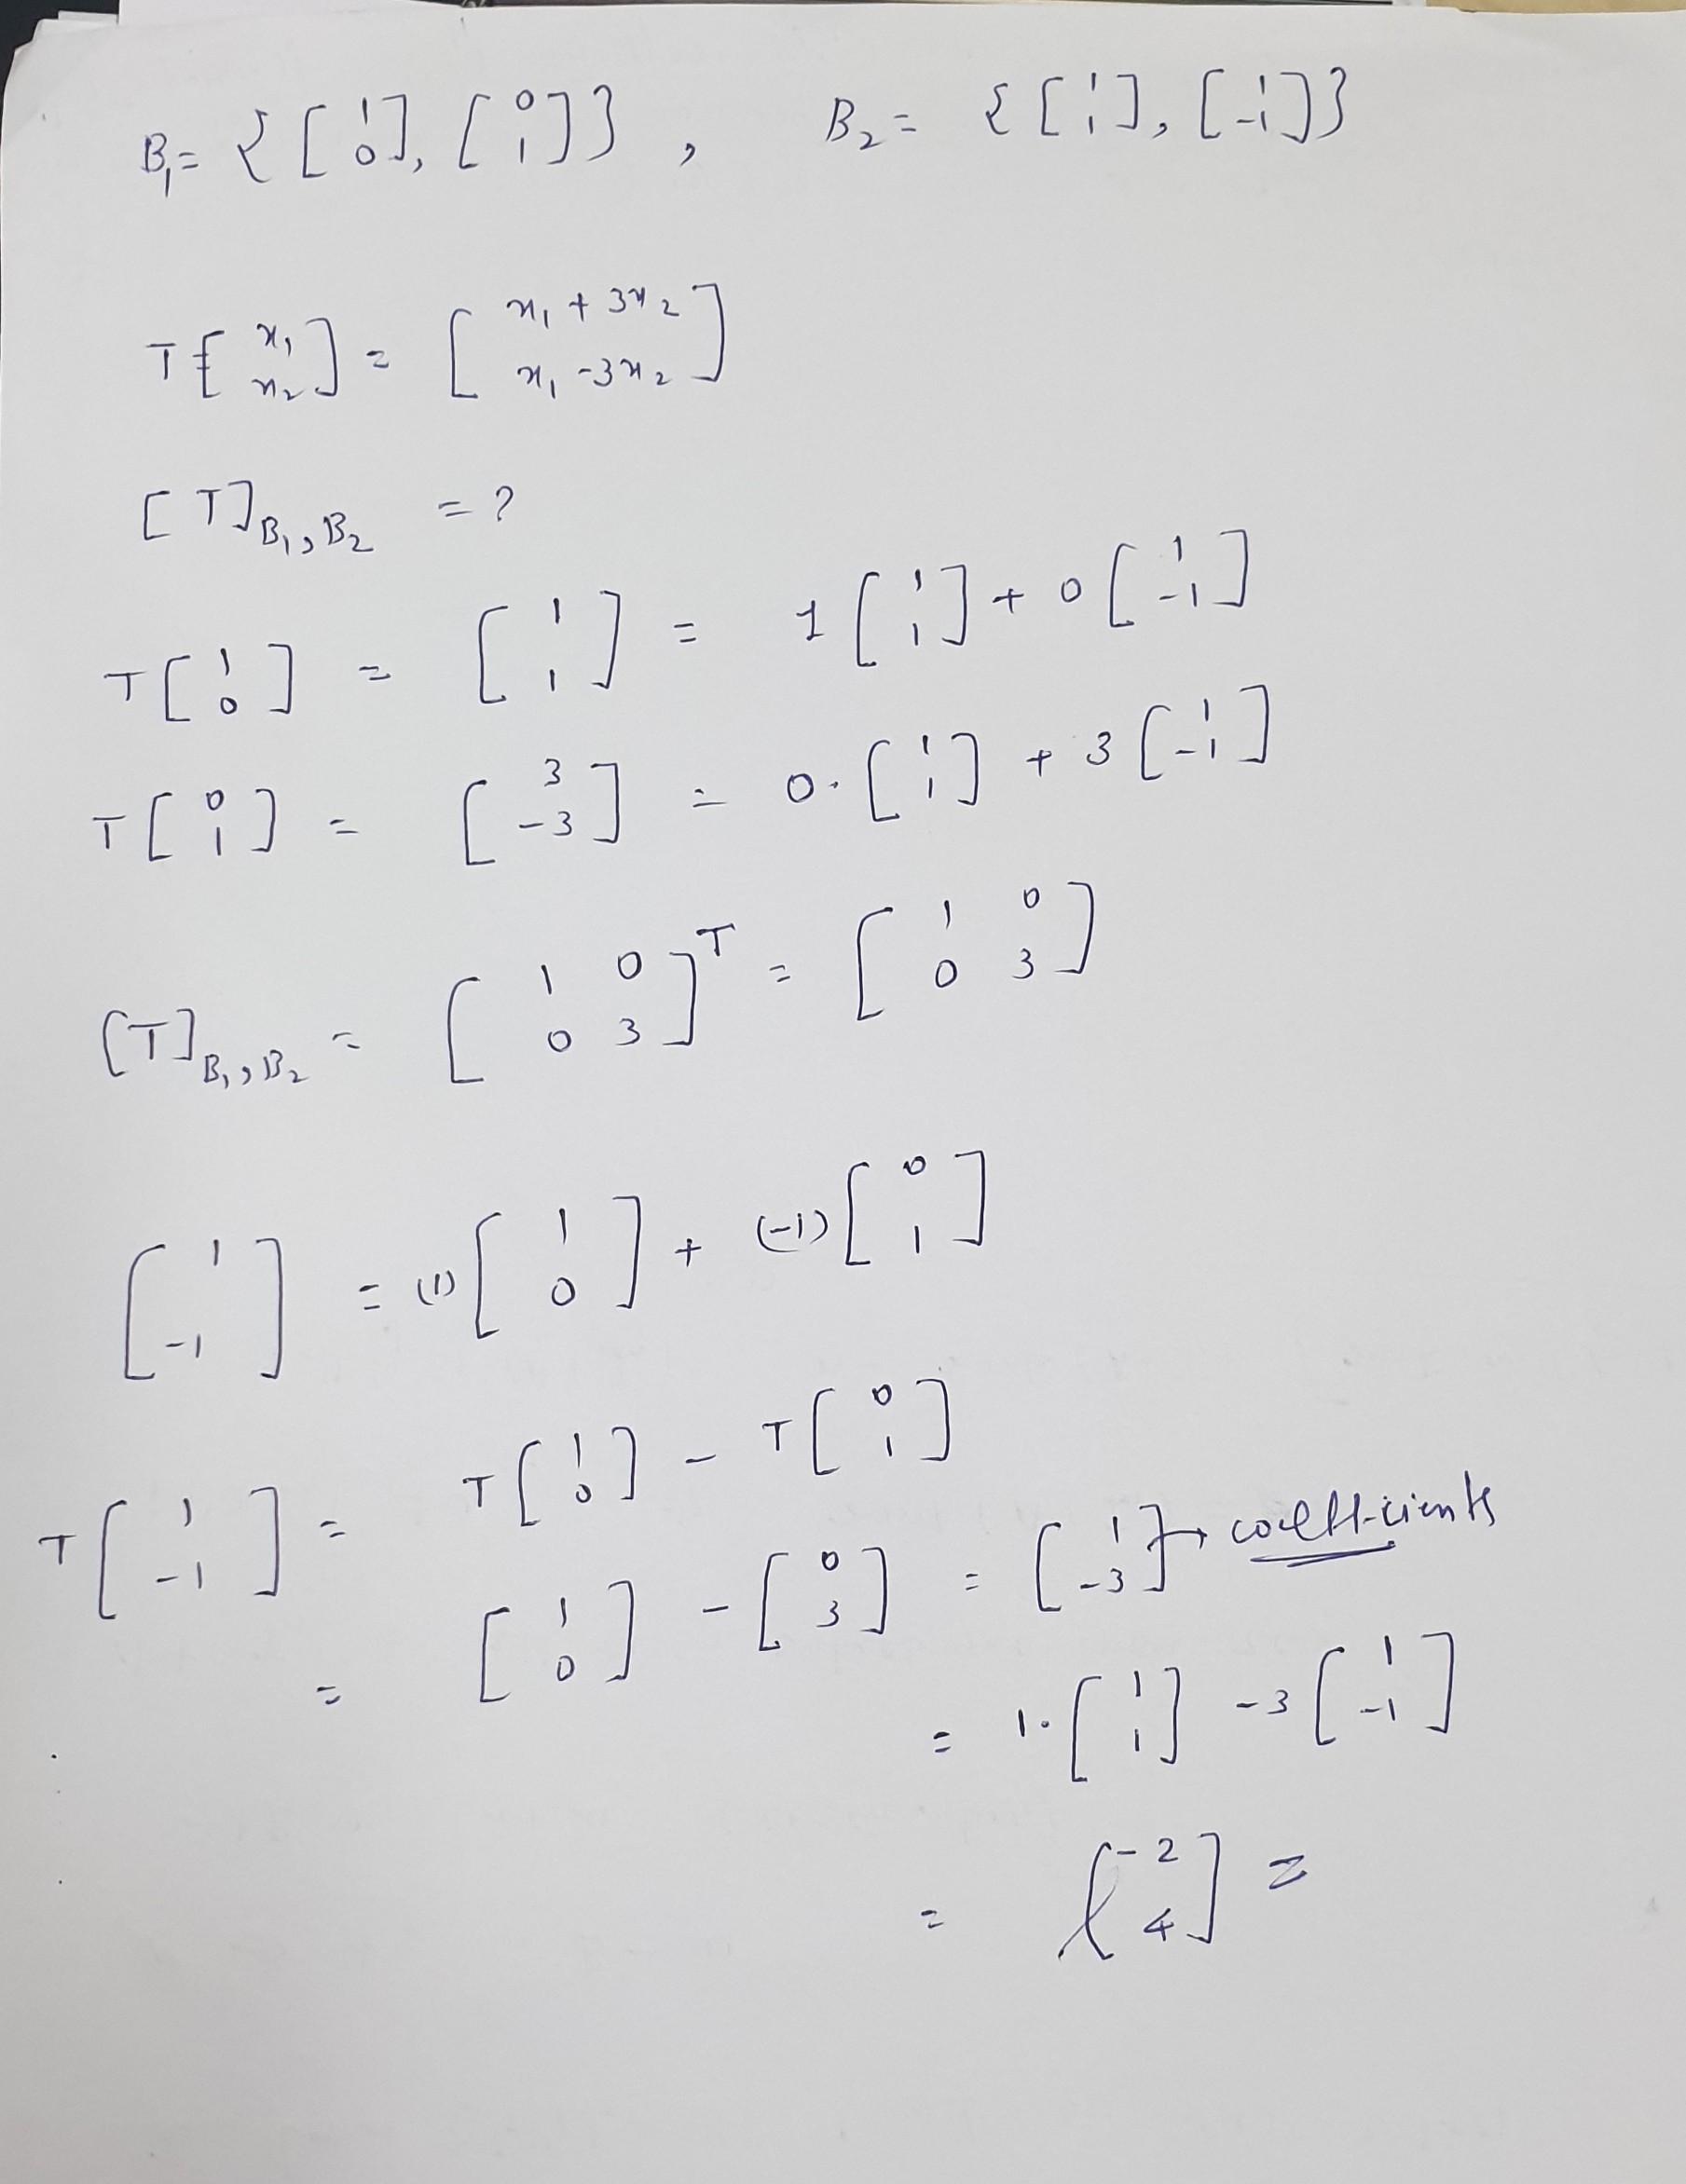 B₁ = { [1 0], [0 1] } , B₂ = { [1 1], [1 -1] }
T [x₁ x₂] = [x₁ + 3x₂ x₁ - 3x₂]
[T]B₁,B₂ = ?
T [1 0] = [1 1] = 1 [1 1] + 0 [1 -1]
T [0 1] = [3 -3] = 0. [1 1] + 3 [1 -1]
[T]B₁,B₂ = [1 0 0 3]ᵀ = [1 0 0 3]
[1 -1] = (1) [1 0] + (-1) [0 1]
T [1 -1] = T [1 0] - T [0 1]
= [1 0] - [0 3] = [1 -3] → coefficients
= 1. [1 1] - 3 [1 -1]
= [-2 4] =